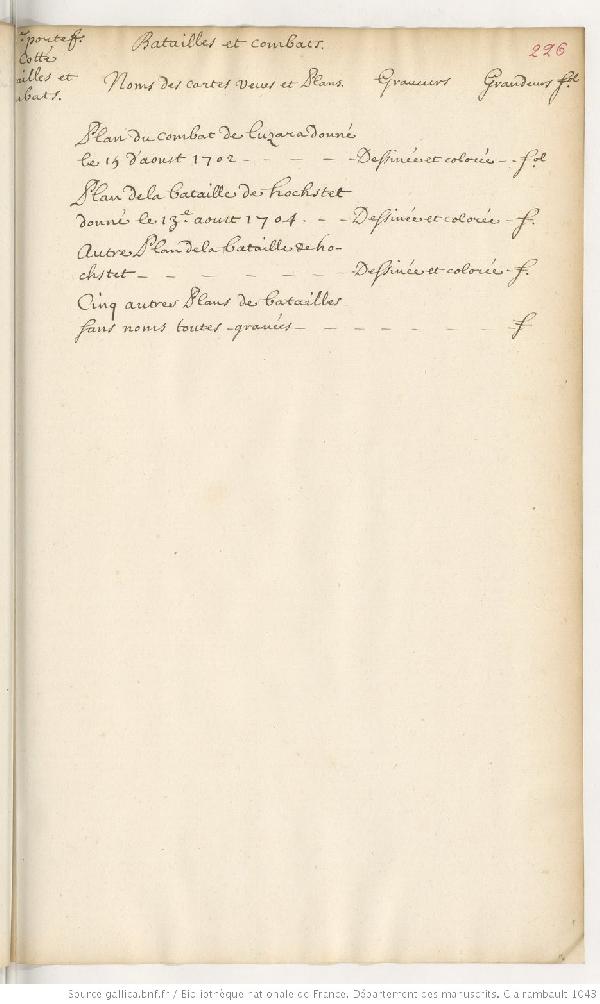 portef.
Cotté
ailles et
bats.
Batailles et combats.
226
Noms des cartes veues et Plans. Graveurs Grandeurs f.ol
Plan du combat de Luzara donné
le 15 d'aoust 1702 - - - - - Dessinée et colorée - - f.ol
Plan de la bataille de hochstet
donné le 13.e aoust 1704. - - Dessinée et colorée - f.
Autre Plan de la bataille de ho-
chstet - - - - - - Dessinée et colorée - f.
Cinq autres Plans de batailles
sans noms toutes gravées - - - - - - - - f
Source gallica.bnf.fr / Bibliothèque nationale de France. Département des manuscrits. Clairambault 1043